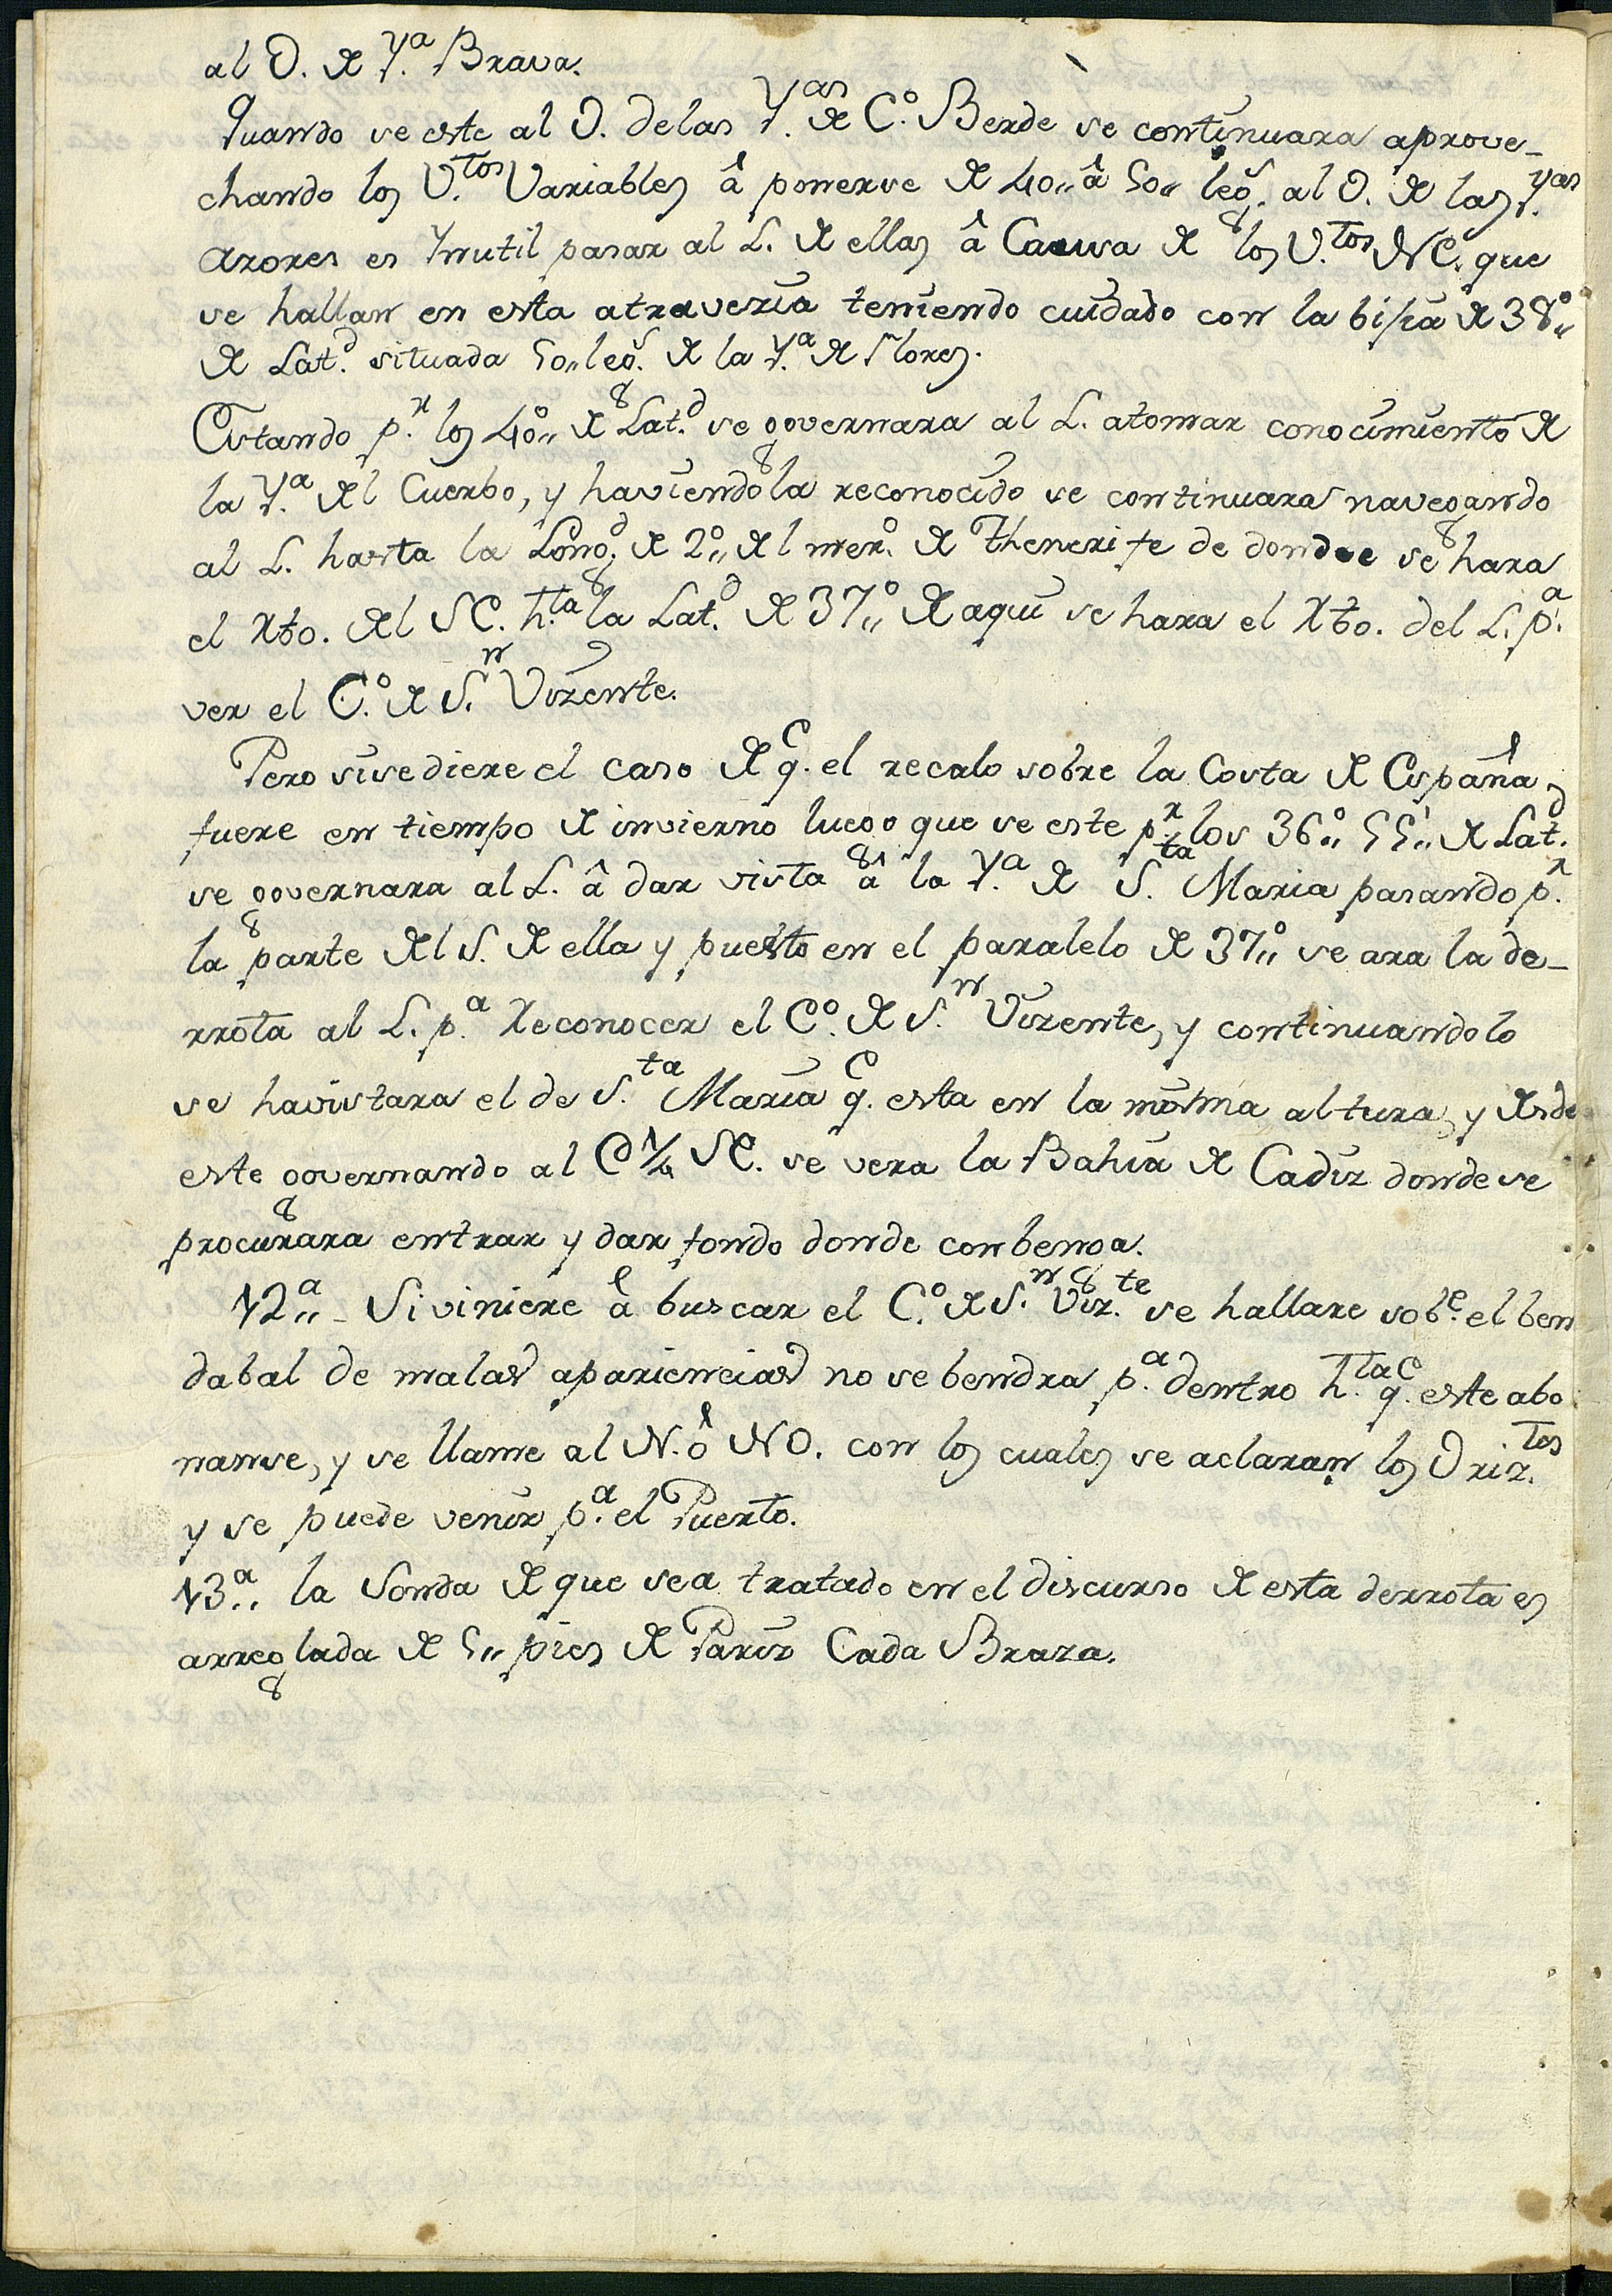 al O. de Y.ª Brava.
Quando se este al O. delas Y.as de C.º Berde se continuara aprove-
chando los V.tos Variables â ponerse de 40,, â 50,, leg.s al O. de las Y.as
azores es Ynutil pasar al L. de ellas â Causa de los V.tos NE. que
se hallan en esta atravesia teniendo cuidado con la bijia de 38º,,
de Lat.d situada 50,, leg.s de la Y.ª de Flores.
Estando p.r los 40º,, de Lat.d se governara al L. atomar conocimiento de
la Y.ª del Cuerbo, y haviendola reconocido se continuara navegando
al L. hasta la Long.d de 2º,, del mer.º de Thenerife de donde se hara
el Rto. del SE. h.ta la Lat.d de 37º,, de aqui se hara el Rto. del L. p.ª
ver el C.º de S.n Vizente.
Pero sisediere el caso de q.e el recalo sobre la Costa de España
fuere en tiempo de invierno luego que se este p.r los 36º,, 55',, de Lat.d
se governara al L. â dar vista â la Y.ª de S.ta Maria pasando p.r
la parte del S. de ella y puesto en el paralelo de 37º,, se ara la de-
rrota al L. p.ª Reconocer el C.º de S.n Vizente, y continuandolo
se havistara el de S.ta Maria q.e esta en la misma altura, y desde
este governando al E 1/4 SE. se vera la Bahia de Cadiz donde se
procurara entrar y dar fondo donde conbenga.
12ª,, - Si viniere â buscar el C.º de S.n Viz.te se hallare sob.e el ben
dabal de malas apariencias no se bendra p.ª dentro h.ta q.e este abo
nanse, y se llame al N. ô NO. con los cuales se aclaran los Oriz.tes
y se puede venir p.ª el Puerto.
13ª.. la Sonda de que sea tratado en el discurso de esta derrota es
arreglada de 5,, pies de Paris Cada Braza.